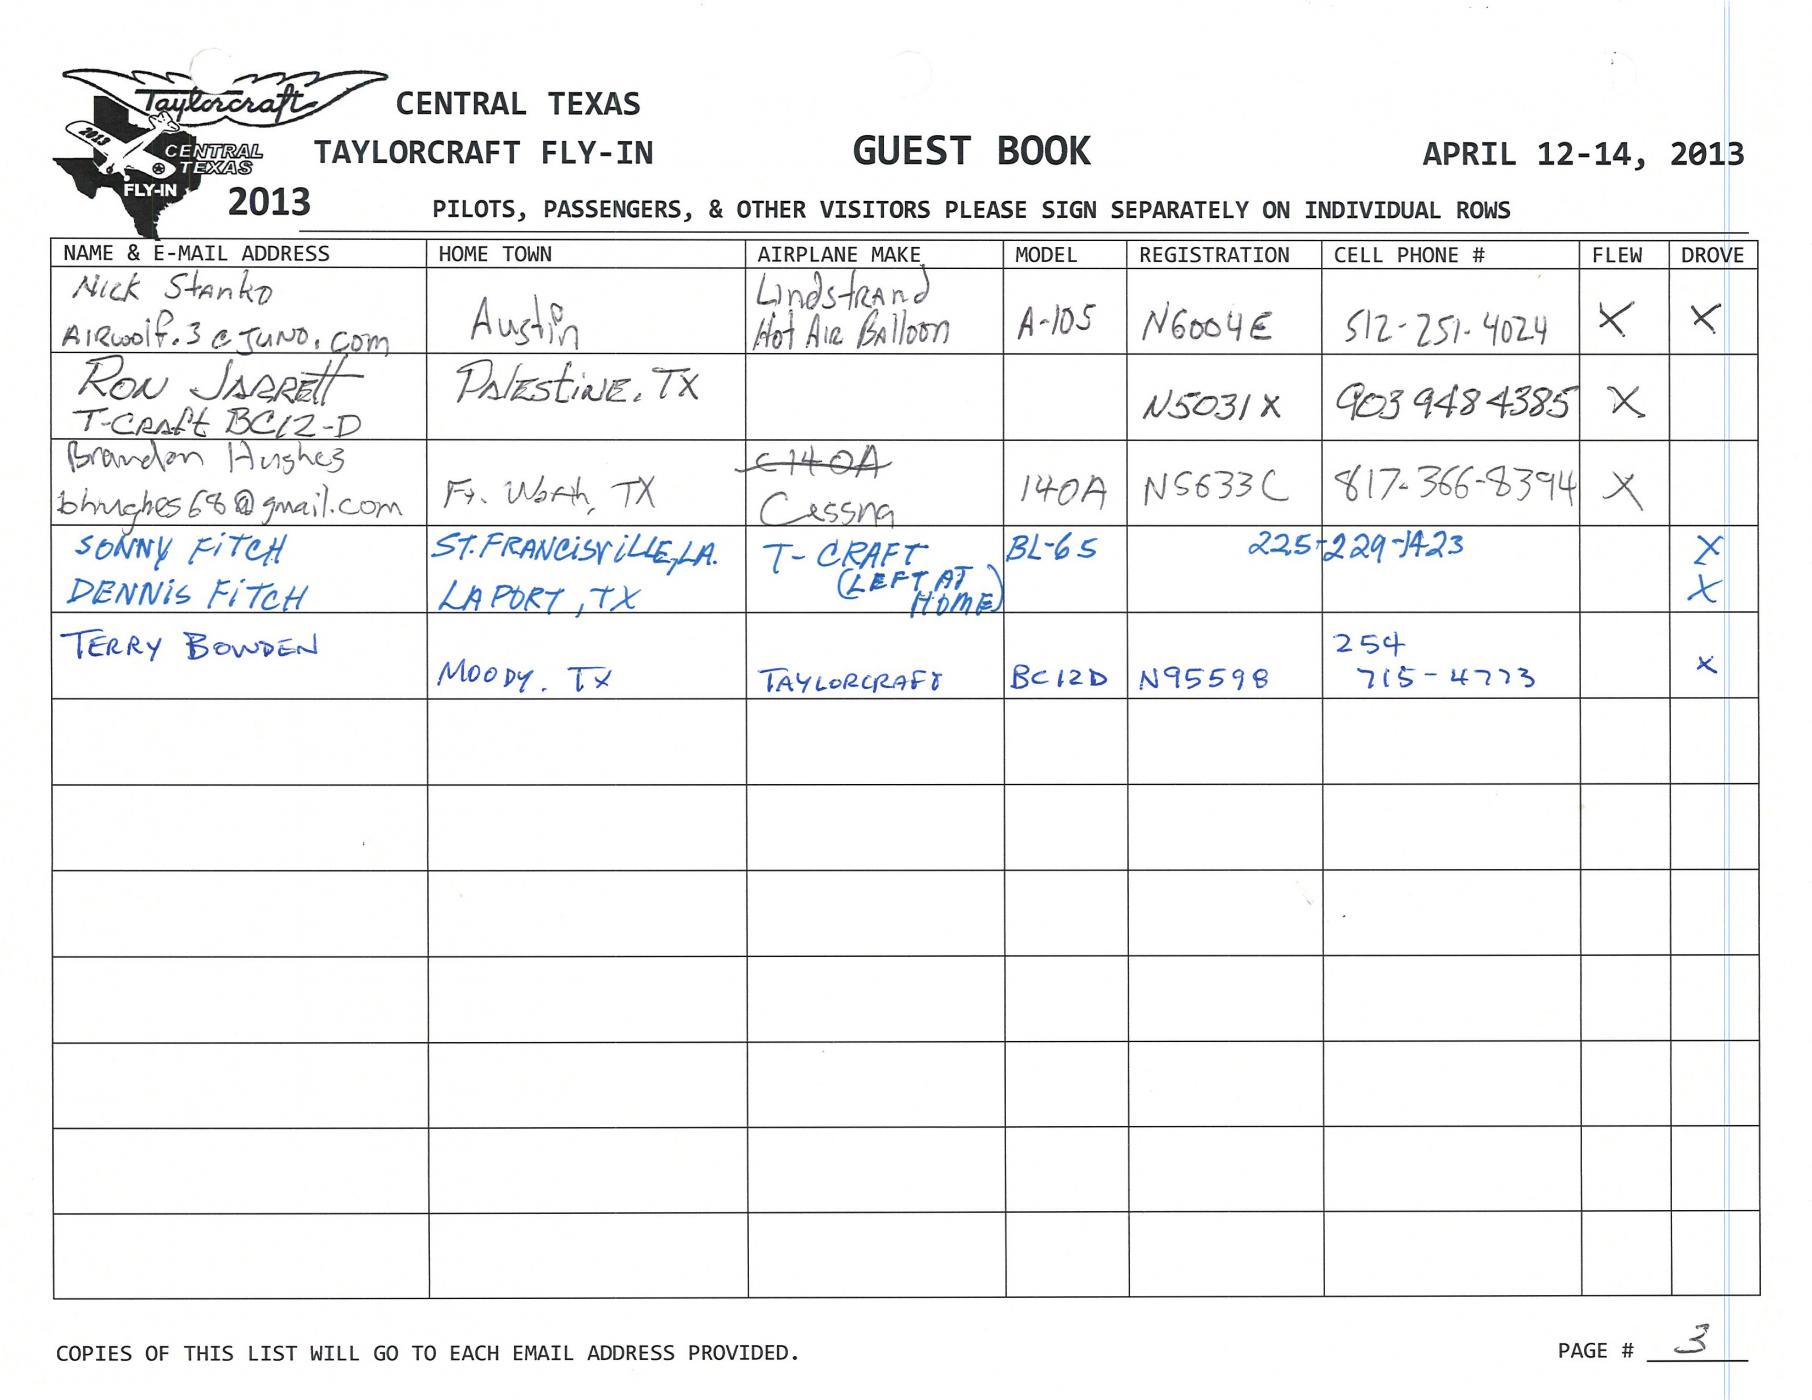 Taylorcraft
2013
CENTRAL
TEXAS
FLY-IN
CENTRAL TEXAS
TAYLORCRAFT FLY-IN
2013
GUEST BOOK
APRIL 12-14, 2013
PILOTS, PASSENGERS, & OTHER VISITORS PLEASE SIGN SEPARATELY ON INDIVIDUAL ROWS
NAME & E-MAIL ADDRESS HOME TOWN AIRPLANE MAKE MODEL REGISTRATION CELL PHONE # FLEW DROVE
Nick Stanko Lindstrand
AIRWOlf.3@JUNO.com Austin Hot Air Balloon A-105 N6004E 512-251-4024 X X
RON JARRETT PALESTINE, TX
T-CRAft BC12-D N5031X 903 948 4385 X
Brandon Hughes C140A
bhughes68@gmail.com Ft. Worth, TX Cessna 140A N5633C 817-366-8394 X
SONNY FITCH ST. FRANCISVILLE, LA. T-CRAFT BL-65 225-229-1423 X
DENNIS FITCH LAPORT, TX (LEFT AT HOME) X
TERRY BOWDEN 254
MOODY, TX TAYLORCRAFT BC12D N95598 715-4773 X
COPIES OF THIS LIST WILL GO TO EACH EMAIL ADDRESS PROVIDED.
PAGE # 3